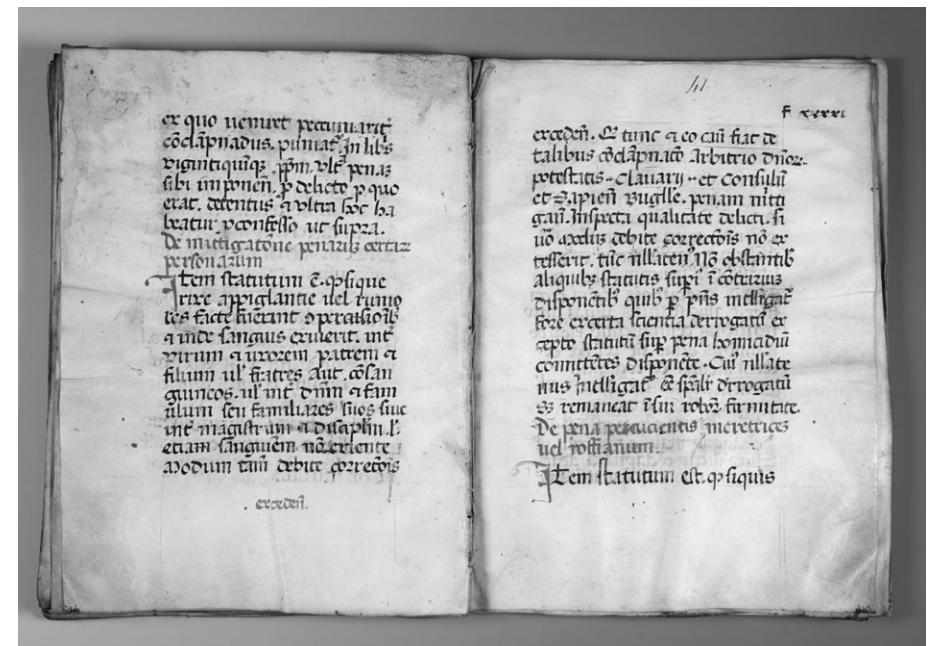 ex quo veniret pecuniarit̃
cõdãpnadus. puniat̃. In libs
vigintiquiqз ꝑꝑm. vlt̃ penaз
sibi imponeñ. ꝓ delicto ꝑ quo
erat. detentus ⁊ vltra hoc ha
beatur ꝓ confesso ut supra.
De mittigatõne penarũ certaꝝ
personarum
Item statutum ẽ. ꝙ sique
rixe appiglantie vel rumo
res facte fuerint ꝯ ꝑcussioĩb
⁊ inde sanguis exiverit. int̃
virum ⁊ uxorem patrem ⁊
filium ul̃ fratres Aut. cõsan
guineos. ul̃ int̃ dñm ⁊ fam
ulum seu familiares suos sive
int̃ magistrum ⁊ disciplũ. l̃.
etiam sanguem. nõ exiente
modum tam̃ debite correctõis
. excedeñ.
41
f xxxxi
excedeñ. Qͥ tunc ⁊ eo casũ fiat de
talibus cõdãpnatõ Arbitrio dñoꝝ
potestatis. Clavarij. et Consuliũ
et Sapieñ Bugille. penam mitti
gañ. Inspecta qualitate delicti. si
ũo modus debite correctõis nõ ex
cesserit. tũc nllateñ Nõ obstantib
aliquibз statutis supͥ ĩ cõtrariuз
disponẽtib quib ꝑ pñs intelligat̃
fore ex certa scientia derrogatũ ex
cepto statutũ suꝑ pena homicidiũ
comittẽtes disponẽte. Cuĩ nllate
nus Intelligat̃ eẽ spãlr̃ drrogatũ
Sз remaneat ĩ sui roboꝝ firmitate.
De pena percucientis meretrices
vel roffianum.
Item statutum est. ꝙ siquis